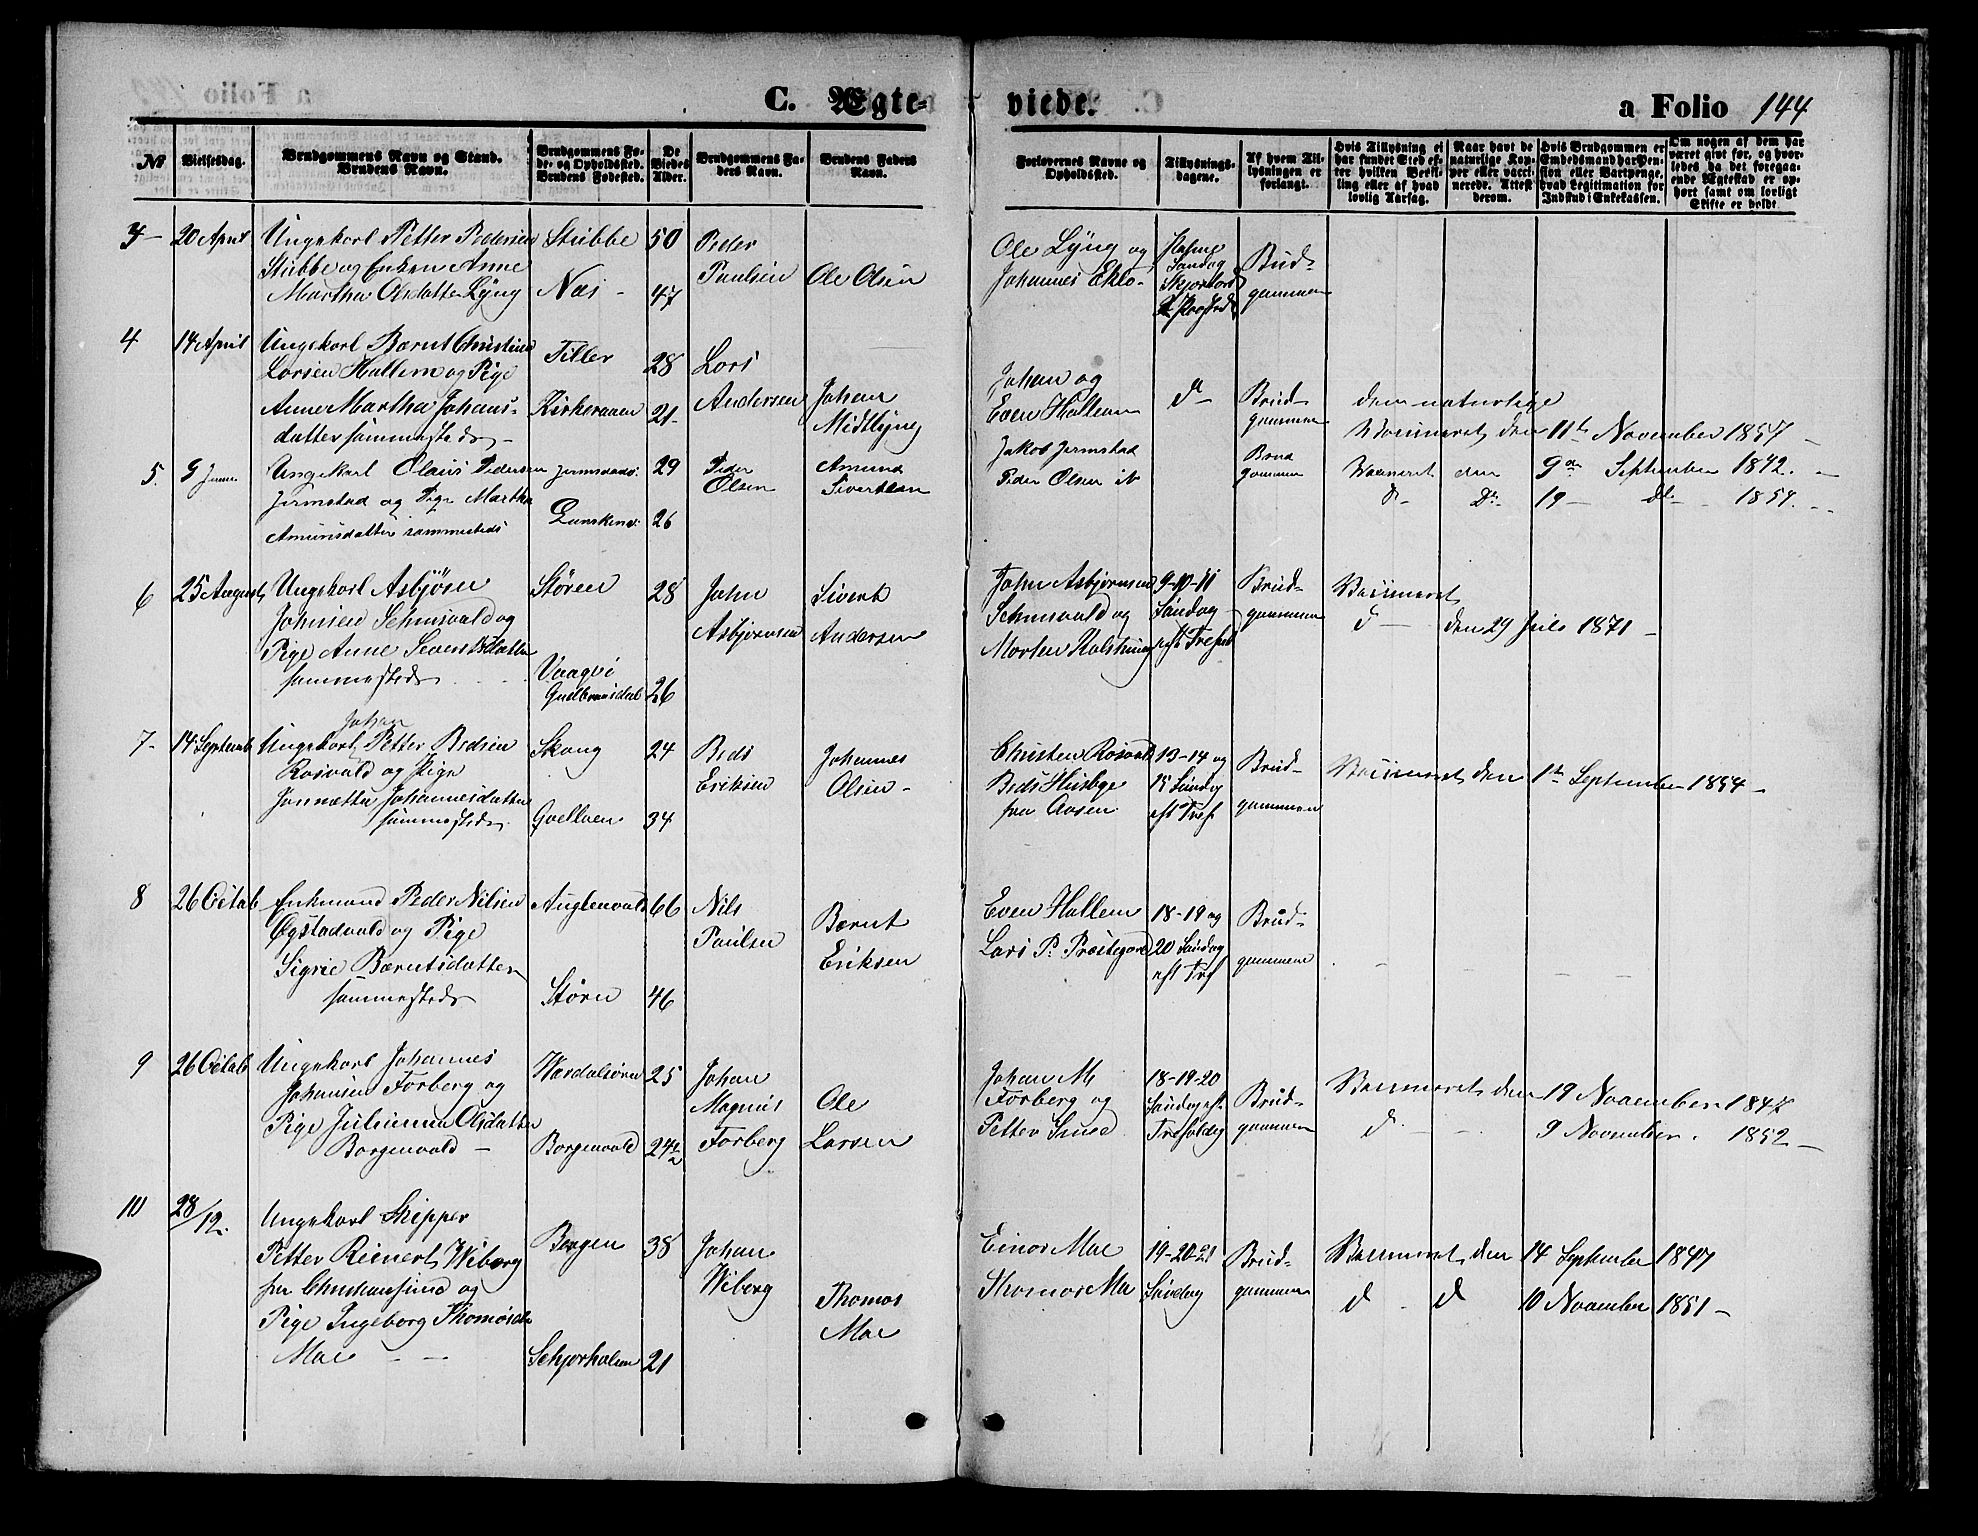 C. Ægte-
viede.
a Folio 144
No
Vielsesdag.
Brudgommens Navn og Stand.
Brudens Navn.
Brudgommens Fø-
de- og Opholdssted.
Brudens Fødested.
De
Viedes
Alder.
Brudgommens Fa-
ders Navn.
Brudens Faders
Navn.
Forlovernes Navne og
Opholdssted.
Tillysnings-
dagene.
Af hvem Til-
lysningen er
forlangt.
Hvis Tillysning ei
har fundet Sted ef-
ter hvilken Bevil-
ling eller af hvad
lovlig Aarsag.
Naar havt de
naturlige Kop-
per eller vacci-
nerede. Attest
derom.
Hvis Brudgommen er
Embedsmand har Pen-
sion eller Vartpenge,
hvad Legitimation for
Indskud i Enkekassen.
Om nogen af dem har
været gift før, og hvor-
ledes da det foregaa-
ende Ægteskab er op-
hørt samt om lovligt
Skifte er holdt.
3 20 April
Ungekarl Petter Pedersen
Stubbe og Enken Anne
Martha Olsdatter Lÿng
Stubbe
Næs
50
47
Peder
Paulsen
Ole Olsen
Ole Lÿng og
Johannes Eklo
Palme
Søndag
Brud-
gommen
4 14 April
Ungekarl Bærnt Christian
Larsen Hallem og Pige
Anne Martha Johans-
datter sammesteds
Tiller
Kirkeraaen
28
21
Lars
Andersen
Johan
Midtlÿng
Johan og
Even Hallem
d
Brud-
gommen
dem naturlige
Vacineret den 11te November 1857
5. 9 Juni
Ungekarl Olaus Pedersen
Jermstad og Pige Martha
Amundsdatter sammesteds
29
26
Peder
Olsen
Amund
Sivertsen
Jakob Jermstad
Peder Olsen
Brud
gommen
Vacineret den 9de September 1842.
d Do 19 do 1851.
6 25 August
Ungekarl Asbjøen
Johnsen Sehmsvald og
Pige Anne Siverts Datter
sammesteds
Støren
Vaagø
Gudbransdal
28
26
John
Asbjørnsen
Sivert
Andersen
John Asbjørnsen
Sehmsvald og
Morten
9-10-11
Søndag
eft Trefol
Brud-
gommen
Vacineret
d den 29 Juli 1871
7 14 Septemb
Johan
Ungekarl Petter Bedsen
Rosvald og Pige
Jonnætta Johannesdatter
sammesteds
Skong
24
34
Beds
Eriksen
Johannes
Olsen
Christen Rosvold
Beds Husbye
fra Aasen
13-14 og
15 Søndag
eft Tref
Brud-
gommen
Vacineret den 1te September 1854
8 26 Octob
Enkmand Peder Nilsen
Øgstadvald og Pige
Sigrie Bærntsdatter
sammesteds
Auglenvald
Støren
66
46
Nils
Paulsen
Bærnt
Eriksen
Even Hallem
Lars P. Præstegard
18-19 og
20 Søndag
eft Tref
Brud-
gommen
9 26 Octob
Ungekarl Johannes
Johansen Forberg og
Pige Julianna Olsdatter
Borgenvald
Værdalsøren
Borgenvald
25
24½
Johan
Magnus
Forberg
Ole
Larsen
Johan M
Forberg og
Petter
18-19-20
Søndag eft
Trefoldig
Brud-
gommen
Vacineret den 19 November 1847
d 9 November 1852
10 28/12
Ungekarl Skipper
Petter Reinert Wiberg
fra Christiansund og
Pige Ingeborg Thomasda
Mae
Bergen
38
21
Johan
Wiberg
Thomas
Mae
Einar Mae
Thomas Mae
19-20-21
Søndag
Brud-
gommen
Vacineret den 14 September 1847
d d 10 November 1851